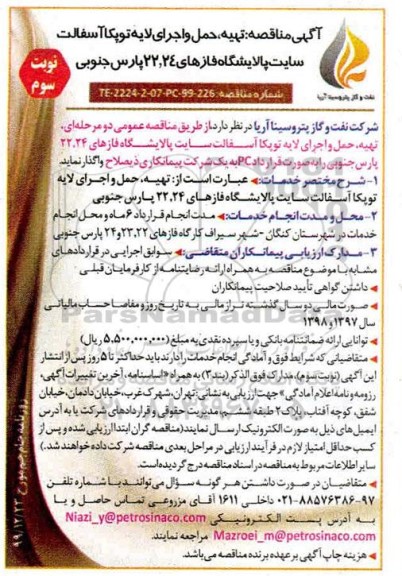 آگهی مناقصه: تهیه، حمل و اجرای لایه توپکا آسفالت
سایت پالایشگاه فازهای ۲۲،۲۴ پارس جنوبی
نوبت
سوم
نفت و گاز پتروسینا آریا
شماره مناقصه: TE-2224-2-07-PC-99-226
شرکت نفت و گاز پتروسینا آریا در نظر دارد از طریق مناقصه عمومی دو مرحله‌ای،
تهیه، حمل و اجرای لایه توپکا آسفالت سایت پالایشگاه فازهای ۲۲،۲۴
پارس جنوبی را به صورت قرارداد PC به یک شرکت پیمانکاری ذیصلاح واگذار نماید.
۱- شرح مختصر خدمات: عبارت است از: تهیه، حمل و اجرای لایه
توپکا آسفالت سایت پالایشگاه فازهای ۲۲،۲۴ پارس جنوبی
۲- محل و مدت انجام خدمات: مدت انجام قرارداد ۶ ماه و محل انجام
خدمات در شهرستان کنگان - شهر سیراف کارگاه فازهای ۲۲،۲۳ و ۲۴ پارس جنوبی
۳- مدارک ارزیابی پیمانکاران متقاضی: سوابق اجرایی در قراردادهای
مشابه با موضوع مناقصه به همراه ارائه رضایتنامه از کارفرمایان قبلی
داشتن گواهی تأیید صلاحیت پیمانکاران
صورت مالی دو سال گذشته تراز مالی به تاریخ روز و مفاصا حساب مالیاتی
سال ۱۳۹۷ و ۱۳۹۸
توانایی ارائه ضمانتنامه بانکی و یا سپرده نقدی به مبلغ (۵,۵۰۰,۰۰۰,۰۰۰) ریال
متقاضیانی که شرایط فوق و آمادگی انجام خدمات را دارند باید حداکثر تا ۵ روز پس از انتشار
این آگهی (نوبت سوم)، مدارک فوق الذکر (بند ۳) به همراه «اساسنامه، آخرین تغییرات آگهی،
رزومه و نامه اعلام آمادگی» جهت ارزیابی به نشانی: تهران، شهرک غرب، خیابان دادمان، خیابان
شفق، کوچه آفتاب، پلاک ۲ طبقه ششم، مدیریت حقوقی و قراردادهای شرکت یا به آدرس
ایمیل‌های ذیل به صورت الکترونیک ارسال نمایند (مناقصه گران ابتدا ارزیابی شده و پس از
کسب حداقل امتیاز لازم در فرآیند ارزیابی در مراحل بعدی مناقصه شرکت داده خواهند شد.)
سایر اطلاعات مربوط به مناقصه در اسناد مناقصه درج گردیده است.
متقاضیان در صورت داشتن هر گونه سؤال می‌توانند با شماره تلفن
۰۲۱-۸۸۵۷۶۳۸۶-۹۷ داخلی ۱۶۱۱ آقای مزروعی تماس حاصل و یا
به آدرس پست الکترونیکی Niazi_y@petrosinaco.com
Mazroei_m@petrosinaco.com مراجعه نمایند.
هزینه چاپ آگهی بر عهده برنده مناقصه می‌باشد.
روزنامه جام جم مورخ ۹۹/۱۲/۲۳
ParsNamadData